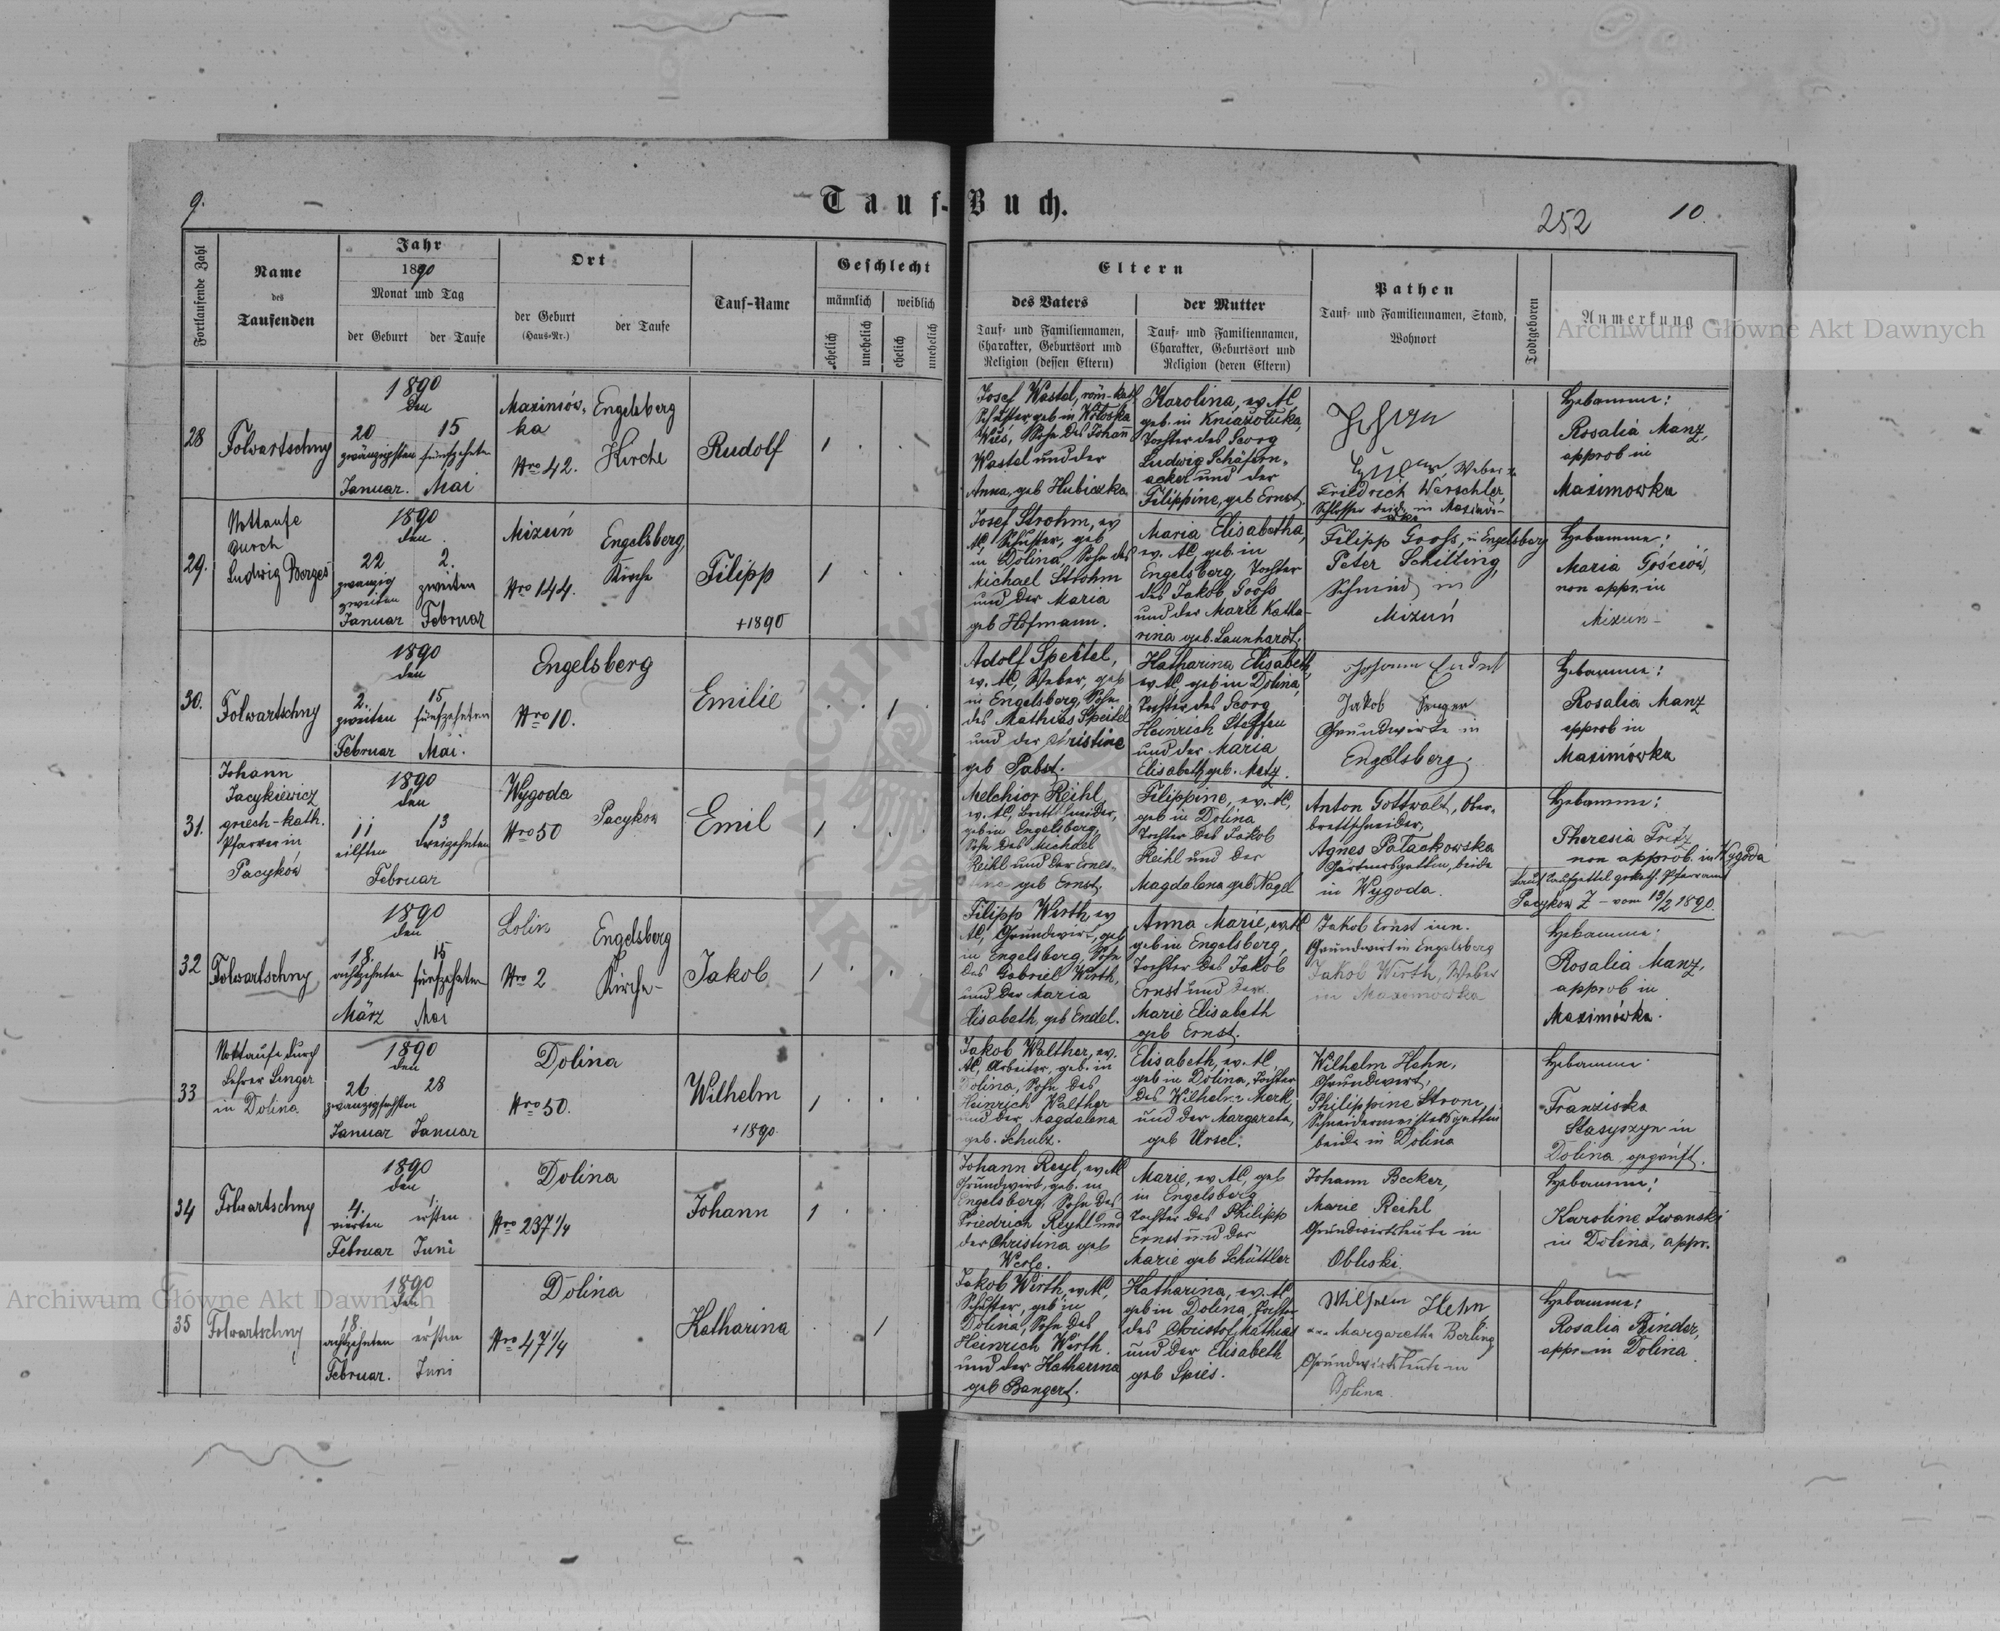 9.
Tauf-Buch.
252
10.
Fortlaufende Zahl
Name
des
Taufenden
Jahr
1890
Monat und Tag
der Geburt
der Taufe
Ort
der Geburt
(Haus-Nr.)
der Taufe
Tauf-Name
Geschlecht
männlich
weiblich
ehelich
unehelich
ehelich
unehelich
Eltern
des Vaters
Tauf- und Familiennamen,
Charakter, Geburtsort und
Religion (dessen Eltern)
der Mutter
Tauf- und Familiennamen,
Charakter, Geburtsort und
Religion (deren Eltern)
Pathen
Tauf- und Familiennamen, Stand,
Wohnort
Todtgeboren
Anmerkung
Archiwum Główne Akt Dawnych
28
Folwartschny
1890
den
20
zwänzigsten
Januar.
15
fünfzehnten
Mai
Maximów-
ka
Nro 42.
Engelsberg
Kirche
Rudolf
1
Josef Wastel, röm-kath
Schuster, geb in Wołoska
Wieś, Sohn des Johann
Wastel und der
Anna, geb Hubiczka
Karolina, ev. AC
geb. in Kniazołuka,
Tochter des Georg
Ludwig Schäfern-
acker und der
Filippine, geb Ernst.
Weber
Friedrich Warschler,
Schlosser beide in Maximó-
wka
Hebamme:
Rosalia Manz,
approb in
Maximowka
29.
Nottaufe
durch
Ludwig Borges
1890
den
22
zwanzig
zweiten
Januar
2.
zweiten
Februar
Mizuń
Nro 144.
Engelsberg,
Kirche
Filipp
+1890
1
Josef Strohm, ev
AC, Schuster, geb
in Dolina, Sohn des
Michael Strohm
und der Maria
geb Hofmann.
Maria Elisabetha,
ev. AC, geb. in
Engelsberg, Tochter
des Jakob Gooss
und der Marie Katha-
rina geb. Launhardt.
Filipp Gooss, in Engelsberg
Peter Schilling,
Schmied in
Mizuń
Hebamme:
Maria Gościów,
non appr. in
Mizun
30.
Folwartschny
1890
den
2.
zweiten
Februar
15
fünfzehnten
Mai.
Engelsberg
Nro 10.
Emilie
1
Adolf Speitel,
ev. AC, Weber, geb
in Engelsberg, Sohn
des Mathias Speitel
und der Christine
geb Pabst.
Katharina Elisabeth,
ev AC geb in Dolina,
Tochter des Georg
Heinrich Steffen
und der Maria
Elisabeth geb. Metz.
Johann Endel
Jakob Senger
Grundwirte in
Engelsberg.
Hebamme:
Rosalia Manz
approb in
Maximówka
31.
Johann
Jacykiewicz
griech-kath.
Pfarrer in
Pacyków
1890
den
11
eilften
13
dreizehnten
Februar
Wygoda
Nro 50
Pacykow
Emil
1
Melchior Reihl,
ev. AC, Brettschneider,
geb in Engelsberg,
Sohn des Michael
Reihl und der Ernes-
tine geb Ernst.
Filippine, ev. AC,
geb in Dolina
Tochter des Jakob
Reihl und der
Magdalena geb Nagel
Anton Gottwalt, Ober-
brettschneider,
Agnes Palackowska
Gärtnersgattin, beide
in Wygoda.
Hebamme:
Theresia Fritz
non approb. in Wygoda
Laut Taufzettel gr kath. Pfarramt
Pacykow Z - vom 13/2 1890.
32
Folwartschny
1890
den
18.
achtzehnten
März
15
fünfzehnten
Mai
Lolin
Nro 2
Engelsberg
Kirche
Jakob
1
Filipp Wirth, ev
AC, Grundwirt, geb
in Engelsberg, Sohn
des Gabriel Wirth,
und der Maria
Elisabeth, geb Endel.
Anna Marie, ev AC
geb in Engelsberg,
Tochter des Jakob
Ernst und der
Marie Elisabeth
geb Ernst.
Jakob Ernst iun.
Grundwirt in Engelsberg
Jakob Wirth, Weber
in Maximowka
Hebamme:
Rosalia Manz,
approb in
Maximówka.
33
Nottaufe durch
Lehrer Senger
in Dolina
1890
den
26
zwanzigsechsten
Januar
28
Januar
Dolina
Nro 50.
Wilhelm
+1890
1
Jakob Walther, ev.
AC, Arbeiter, geb. in
Dolina, Sohn des
Heinrich Walther
und der Magdalena
geb. Schulz.
Elisabeth, ev. AC,
geb in Dolina, Tochter
des Wilhelm Merk
und der Margareta,
geb Ursel.
Wilhelm Hehn,
Grundwirt,
Philippine Strom,
Schneidermeistersgattin
beide in Dolina
Hebamme
Franziska
Stasyszyn in
Dolina geprüft.
34
Folwartschny
1890
den
4.
vierten
Februar
1.
ersten
Juni
Dolina
Nro 237 1/4
Johann
1
Johann Reyl, ev AC
Grundwirt, geb. in
Engelsberg, Sohn des
Friedrich Reyhl und
der Christina geb
Werle.
Marie, ev AC, geb
in Engelsberg
Tochter des Philipp
Ernst und der
Marie geb Schüttler
Johann Becker,
Marie Reihl
Grundwirtsleute in
Obliski.
Hebamme:
Karoline Iwanski
in Dolina, appr.
35
Folwartschny
1890
den
18.
achtzehnten
Februar.
1
ersten
Juni
Dolina
Nro 47 1/4
Katharina
1
Jakob Wirth, ev AC,
Schuster, geb in
Dolina, Sohn des
Heinrich Wirth
und der Katharina
geb Bangert.
Katharina, ev. AC
geb in Dolina, Tochter
des Christof Mathias
und der Elisabeth
geb Spies.
Wilhelm Hehn
Margaretha Berling
Grundwirtsleute in
Dolina
Hebamme:
Rosalia Binder,
appr in Dolina
Archiwum Główne Akt Dawnych